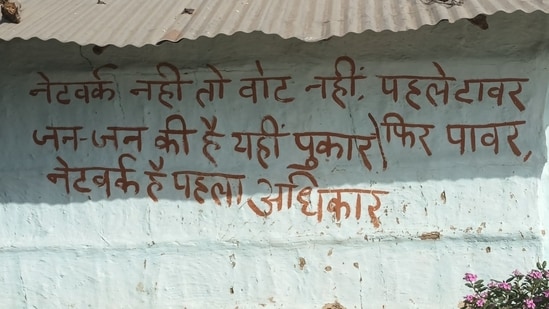 नेटवर्क नहीं तो वोट नहीं, पहले टावर
जन-जन की है यहीं पुकार) फिर पावर,
नेटवर्क है पहला अधिकार